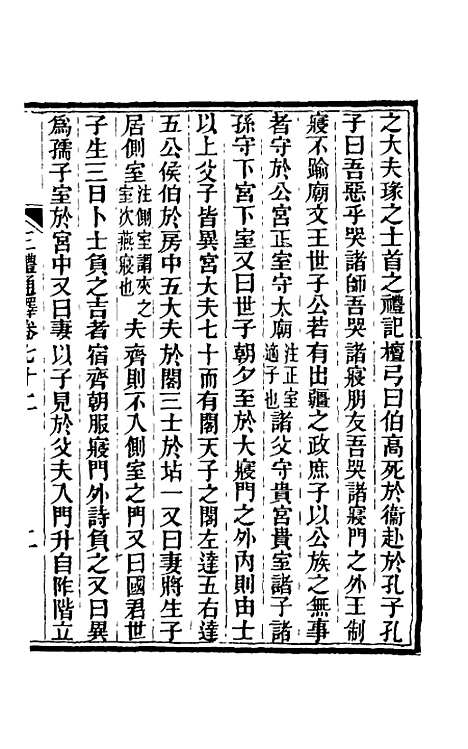 之大夫琢之士首之禮記檀弓曰伯高死於衞赴於孔子孔
子曰吾惡乎哭諸師吾哭諸寢朋友吾哭諸寢門之外王制
寢不踰廟文王世子公若有出疆之政庶子以公族之無事
者守於公宮正室守太廟注正室適子也諸父守貴宮貴室諸子諸
孫守下宮下室又曰世子朝夕至於大寢門之外內則由士
以上父子皆異宮大夫七十而有閣天子之閣左達五右達
五公侯伯於房中五大夫於閣三士於坫一又曰妻將生子
居側室注側室謂夾之室次燕寢也夫齊則不入側室之門又曰國君世
子生三日卜士負之吉者宿齊朝服寢門外詩負之又曰異
為孺子室於宮中又曰妻以子見於父夫入門升自阼階立
三禮通釋卷七十二 二